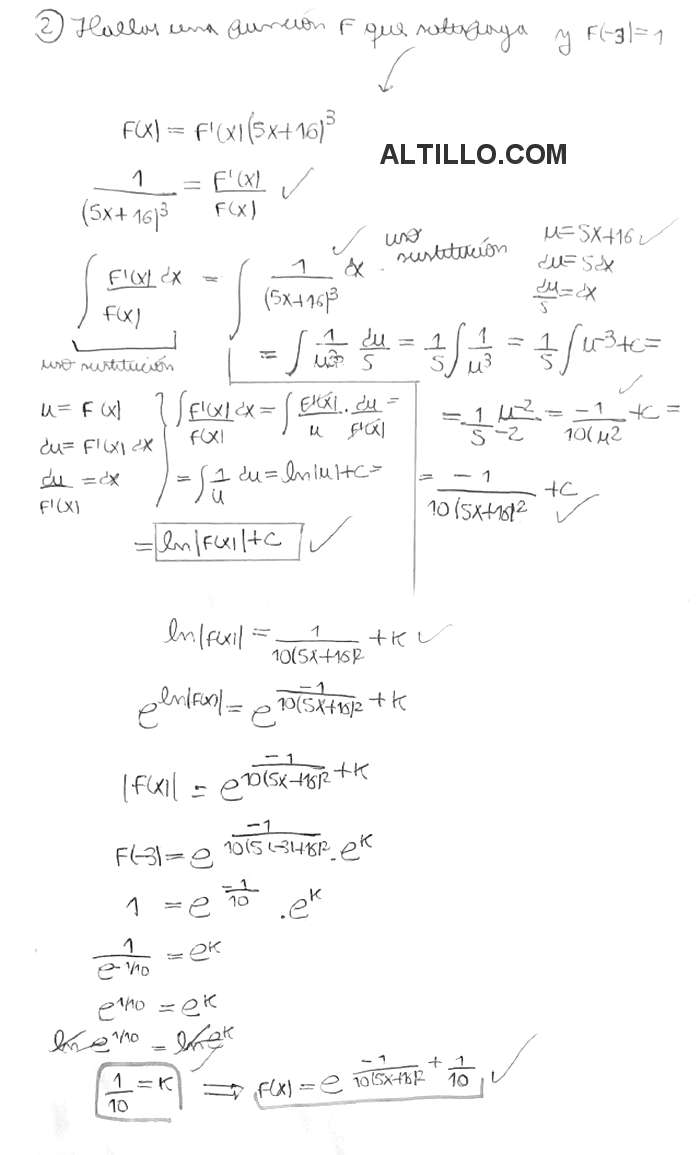 ② Hallar una función F que satisfaga y F(-3)=1
F(x) = F'(x)(5x+16)³
ALTILLO.COM
1/(5x+16)³ = F'(x)/F(x) ✓
∫ F'(x)/F(x) dx = ∫ 1/(5x+16)³ dx . ✓ uso sustitución
u=5x+16 ✓
du=5dx
du/5=dx
uso sustitución
= ∫ 1/u³ du/5 = 1/5 ∫ 1/u³ = 1/5 ∫ u⁻³+c=
= 1/5 u⁻²/-2 = -1/10(u² +c = ✓
= -1/10(5x+16)² +c ✓
u= F(x)
du= F'(x) dx
du/F'(x) =dx
∫ F'(x)/F(x) dx = ∫ F'(x)/u . du/F'(x) =
= ∫ 1/u du = ln|u|+c=
= ln|F(x)|+c ✓
ln|F(x)| = 1/10(5x+16)² +K ✓
e^ln|F(x)| = e^-1/10(5x+16)² +K
|F(x)| = e^-1/10(5x+16)² +K
F(-3) = e^-1/10(5(-3)+16)² . e^K
1 = e^-1/10 . e^K
1/e^-1/10 = e^K
e^1/10 = e^K
ln e^1/10 = ln e^K
1/10 = K ⟹ F(x) = e^-1/10(5x+16)² + 1/10 ✓